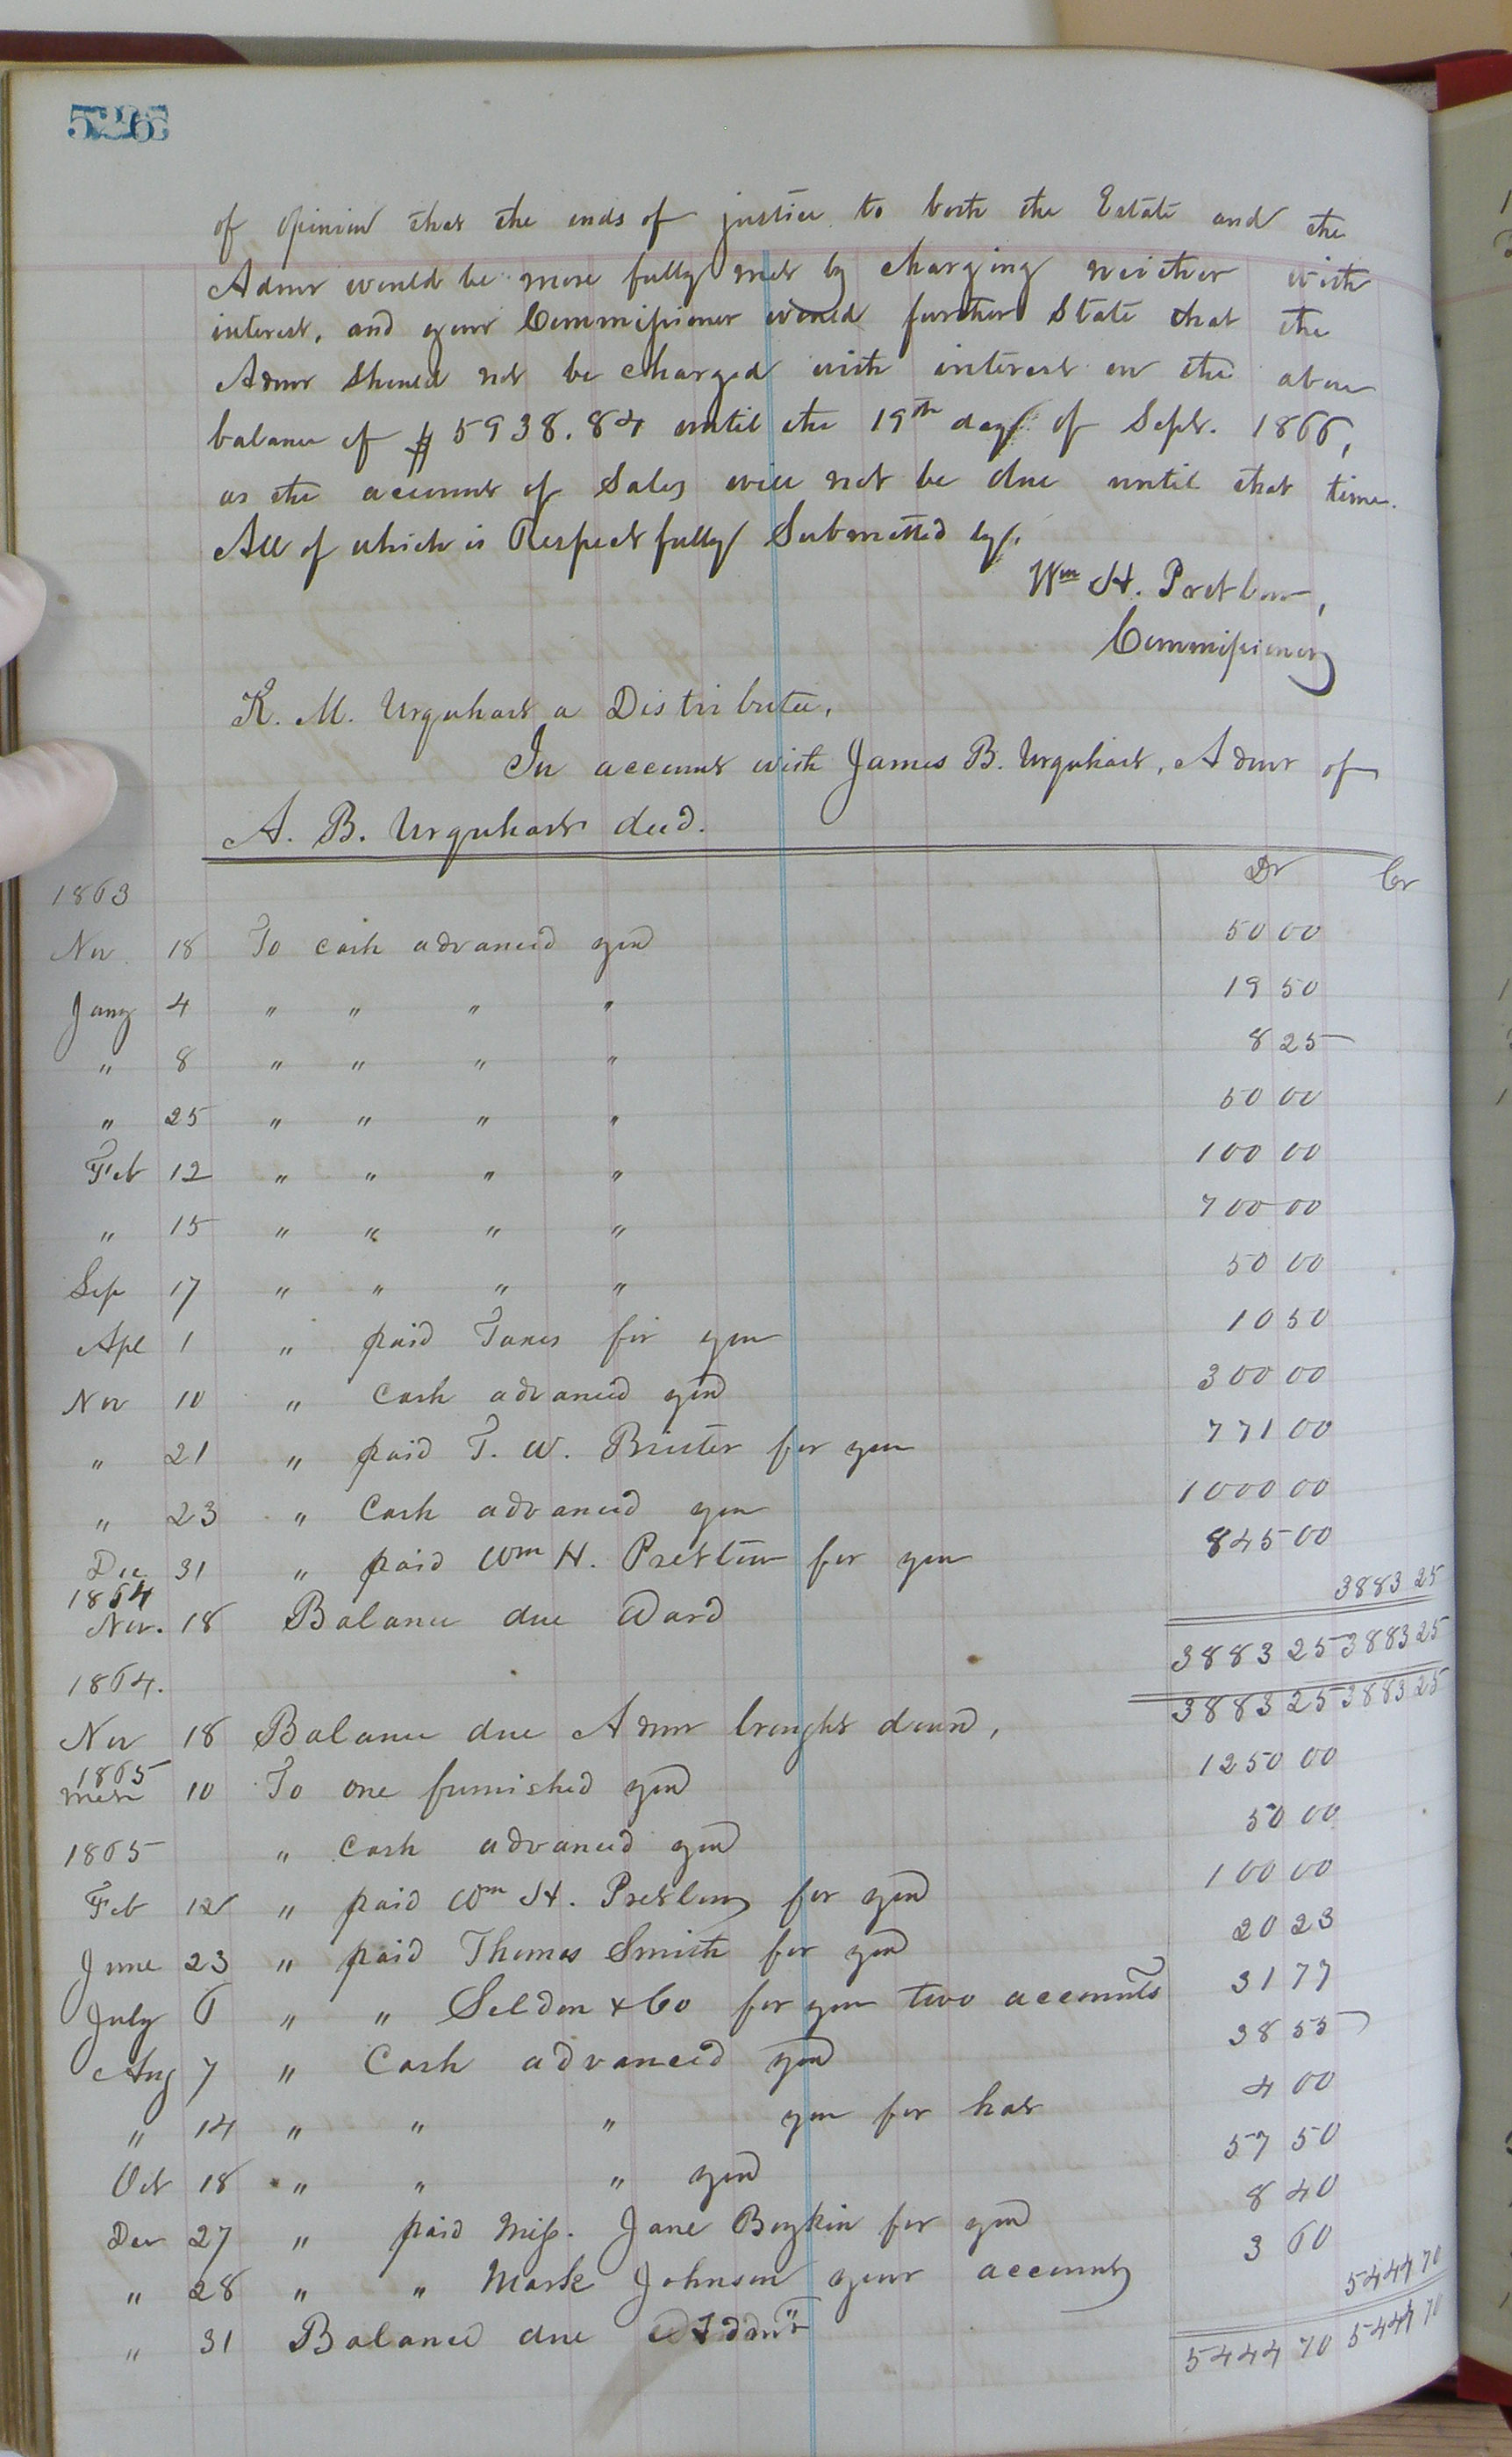 526
of opinion that the ends of justice to both the Estate and the
Admr would be more fully met by charging neither with
interest, and your Commissioner would further State that the
Admr should not be charged with interest on the above
balance of $5938.84 until the 19th day of Sept. 1866,
as the account of Sales will not be due until that time.
All of which is Respectfully Submitted by.
Wm H. Pretlow,
Commissioner
K. M. Urquhart a Distributee,
In account with James B. Urquhart, Admr of
A. B. Urquhart decd.
1863 Dr Cr
Nov. 18 To cash advanced you 50 00
Jany 4 " " " " 19 50
" 8 " " " " 8 25
" 25 " " " " 50 00
Feb 12 " " " " 100 00
" 15 " " " " 700 00
Sep 17 " " " " 50 00
Apl 1 " paid Taxes for you 10 50
Nov 10 " Cash advanced you 300 00
" 21 " paid T. W. Brister for you 771 00
" 23 " Cash advanced you 1000 00
Dec 31 " paid Wm H. Pretlow for you 845 00
1864
Nov. 18 Balance due 3883 25
3883 25 3883 25
1864.
Nov 18 Balance due Admr brought down, 3883 25 3883 25
1865
10 To one furnished you 1250 00
1865 " Cash advanced you 50 00
Feb 12 " paid Wm H. Pretlow for you 100 00
June 23 " paid Thomas Smith for you 20 23
July 6 " " Seldon & Co for your two accounts 31 77
Aug 7 " Cash advanced you 38 55
" 14 " " " you for hat 4 00
Oct 18 " " " you 57 50
Dec 27 " paid Miss. Jane Boykin for you 8 40
" 28 " " Mark Johnson your account 3 60
" 31 Balance due Admr 5444 70
5444 70 5444 70